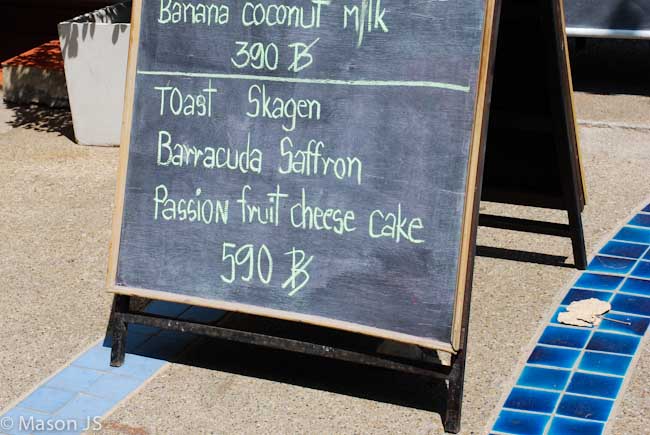 Banana coconut milk
390 ฿
Toast Skagen
Barracuda Saffron
Passion fruit cheese cake
590 ฿
© Mason JS